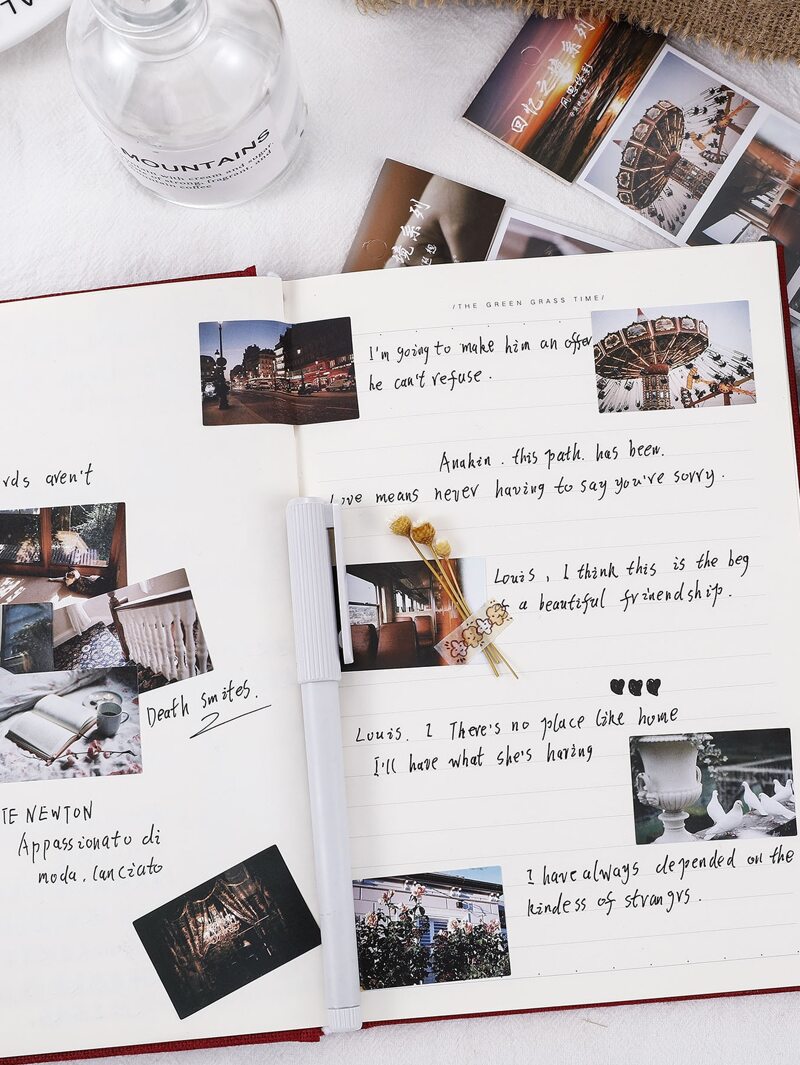 MOUNTAINS
with cream and sugar
of strong, fragrant, and
coffee
回忆之境系列
境系列
/THE GREEN GRASS TIME/
I'm going to make him an offer
he can't refuse.
Anakin. this path. has been.
Love means never having to say you're sorry.
Louis, I think this is the beg
a beautiful frinendship.
Louis. I There's no place like home
I'll have what she's having
I have always depended on the
kindess of strangrs.
rds aren't
Death smites.
TE NEWTON
Appassionato di
moda. lanciato